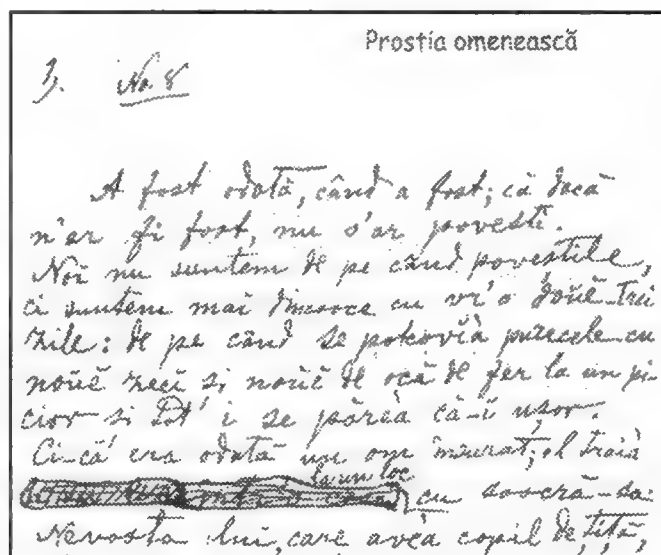 Prostia omenească
3. No. 8
A fost odată, când a fost; că dacă
n'ar fi fost, nu s'ar povesti.
Noi nu suntem de pe când poveștile,
ci suntem mai dincoace cu vr'o doue trei
zile: de pe când se potcovia purecele cu
nouĕ zeci si nouĕ de ocă de fer la un pi-
cior si tot' i se părea că-i ușor.
Ci-că era odată un om însurat; el traia
la un loc
cu soacră-sa.
Nevasta lui, care avea copil de țîță,